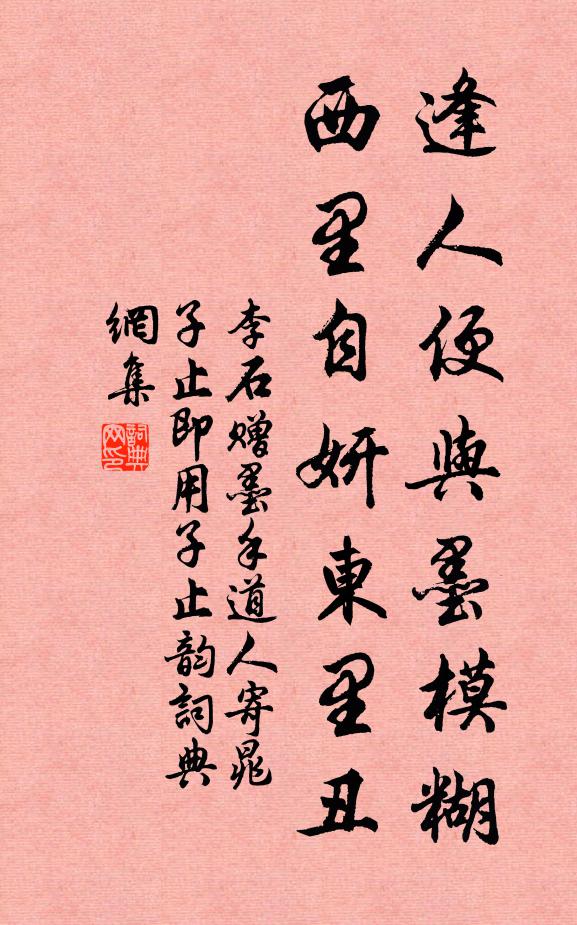 逢人便與墨模糊
西里自妍東里丑
李石贈墨手道人寄晁
子止即用子止韵詞典
網集
詞典
网印